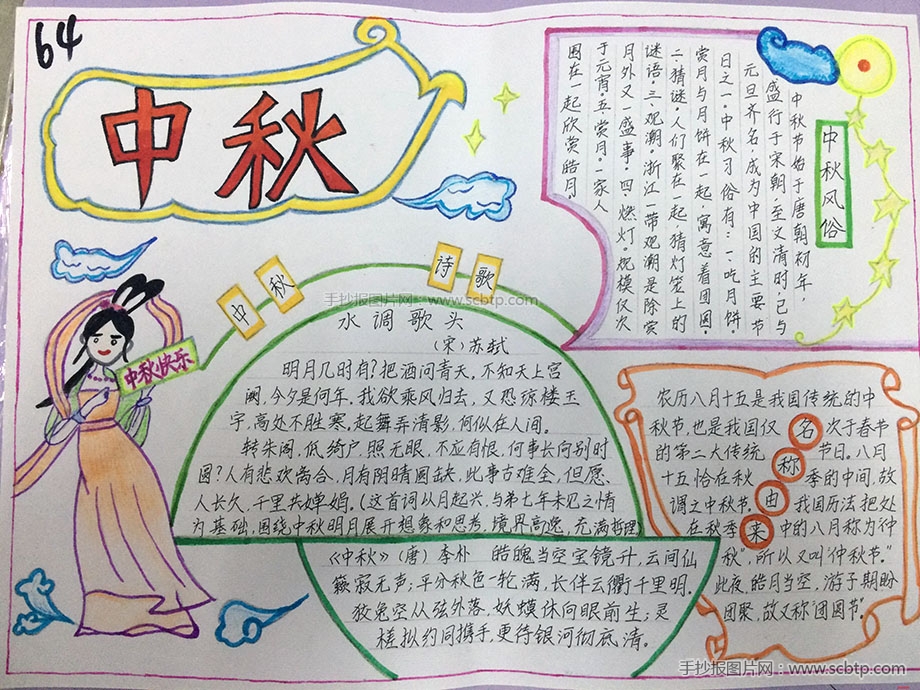 64
中秋
中秋风俗
中秋节始于唐朝初年，
盛行于宋朝，至文清时，已与
元旦齐名，成为中国的主要节
日之一。中秋习俗有：一、吃月饼
赏月与月饼在一起，寓意着团圆。
二、猜谜。人们聚在一起，猜灯笼上的
谜语。三、观潮。浙江一带观潮是除赏
月外又一盛事。四、燃灯。规模仅次
于元宵。五、赏月。一家人
围在一起欣赏皓月。
中秋诗歌
手抄报图片网：www.scbtp.com
水调歌头
（宋）苏轼
明月几时有？把酒问青天，不知天上宫
阙，今夕是何年，我欲乘风归去，又恐琼楼玉
宇，高处不胜寒，起舞弄清影，何似在人间。
转朱阁，低绮户，照无眠，不应有恨，何事长向别时
圆？人有悲欢离合，月有阴晴圆缺，此事古难全，但愿
人长久，千里共婵娟。（这首词从月起兴，与弟七年未见之情
为基础，围绕中秋明月展开想象和思考，境界高逸，充满哲理）
中秋快乐
《中秋》（唐）李朴 皓魄当空宝镜升，云间仙
籁寂无声；平分秋色一轮满，长伴云衢千里明。
狡兔空从弦外落，妖蟆休向眼前生；灵
槎拟约同携手，更待银河彻底清。
名称由来
农历八月十五是我国传统的中
秋节，也是我国仅次于春节
的第二大传统节日。八月
十五恰在秋季的中间，故
谓之中秋节。我国历法把处
在秋季中的八月称为“仲
秋”，所以又叫“仲秋节。”
此夜，皓月当空，游子期盼
团聚，故又称“团圆节”。
手抄报图片网：www.scbtp.com